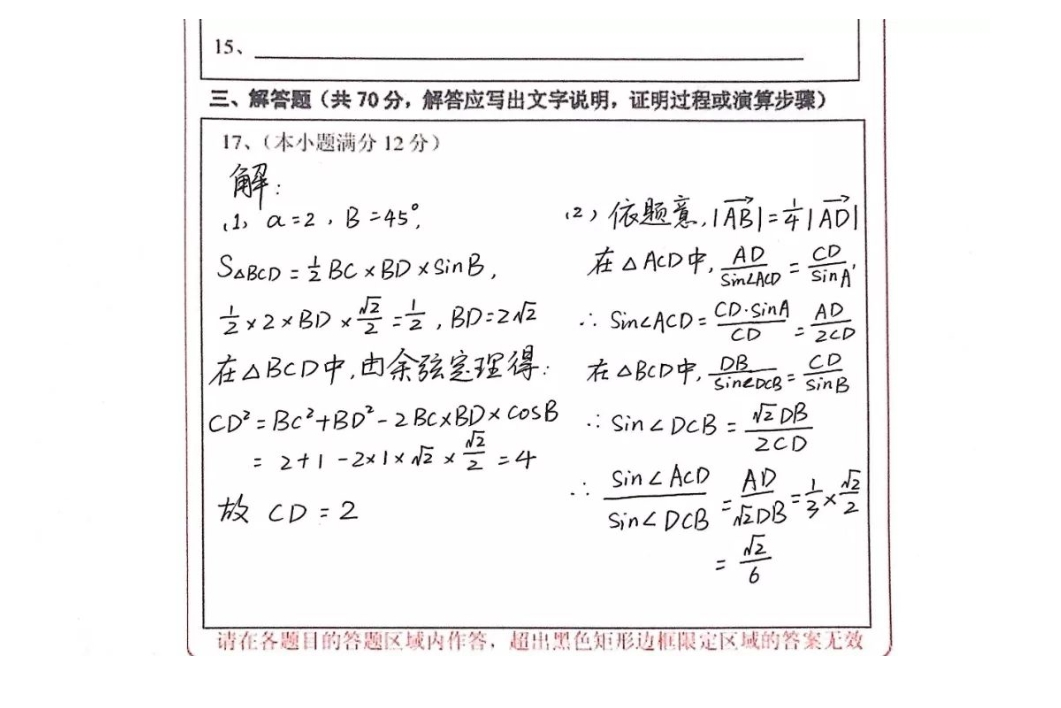 15、
三、解答题（共 70 分，解答应写出文字说明，证明过程或演算步骤）
17、（本小题满分 12 分）
解：
(1) a=2，B=45°，
S△BCD = 1/2 BC×BD×SinB，
1/2×2×BD×√2/2=1/2，BD=2√2
在△BCD中，由余弦定理得：
CD²=BC²+BD²-2BC×BD×cosB
=2+1-2×1×√2×√2/2=4
故 CD=2
(2) 依题意，|AB|=1/4|AD|
在△ACD中，AD/Sin∠ACD=CD/SinA，
∴ Sin∠ACD=CD·SinA/CD=AD/2CD
在△BCD中，DB/Sin∠DCB=CD/SinB
∴ Sin∠DCB=√2DB/2CD
∴ Sin∠ACD/Sin∠DCB=AD/√2DB=1/3×√2/2
=√2/6
请在各题目的答题区域内作答，超出黑色矩形边框限定区域的答案无效